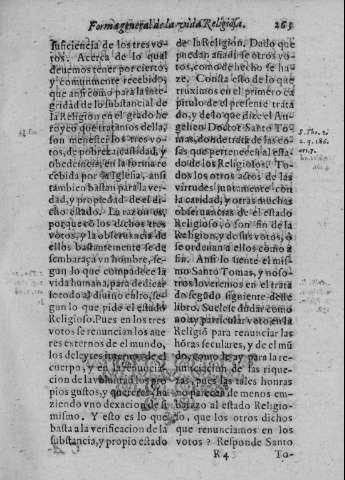 Forma general de la vida Religiosa. 263
suficiencia de los tres vo-
tos. Acerca de lo qual
deuemos tener por cierto,
y comunmente recebido,
que ansi como para la inte-
gridad de lo substancial de
la Religion en el grado he
royco que tratamos della,
son menester los tres votos,
de pobreza, castidad, y
obediencia, en la forma re
cebida por la Iglesia, ansi
tambien bastan para la ver-
dad, y propiedad del di-
cho estado. La razon es,
porque cõ los dichos tres
votos, y la obseruancia de
ellos bastantemente se de
sembaraça vn hombre, se-
gun lo que compadece la
vida humana, para dedicar
se todo al diuino culto, se-
gun lo que pide el estado
Religioso. Pues en los tres
votos se renuncian los aue
res externos de el mundo,
los deleytes internos de el
cuerpo, y en la renuncia-
cion de la voluntad los pro
pios gustos, y quereres, ha
ziendo vno dexacion de si
mismo. Y esto es lo que
basta a la verificacion de la
substancia, y propio estado
de la Religion. Dado que
puedan añadirse otros vo-
tos, como de hecho se ha-
ze. Consta esto de lo que
truximos en el primero ca
pitulo de el presente trata
do, y de lo que dize el An-
gelico Doctor Santo To
mas, donde trata de las co-
sas que pertenecen al esta-
do de los Religiosos. To-
dos los otros actos de las
virtudes juntamente con
la caridad, y otras muchas
obseruancias de el estado
Religioso, ó son fin de la
Religion, y de sus votos, ó
se ordenan a ellos como a
fin. Ansi lo siente el mis-
mo Santo Tomas, y noso-
tros lo veremos en el trata
do segũdo siguiente deste
libro. Suelese dudar como
no ay particular voto en la
Religiõ para renunciar las
hõras seculares, y de el mũ
do, como le ay para la re-
nunciacion de las rique-
zas, pues las tales honras
no parecen de menos em-
barazo al estado Religio-
so, que los otros dichos
que renunciamos en los
votos? Responde Santo
R 4 To-
S. Tho. 2.
2. q. 186.